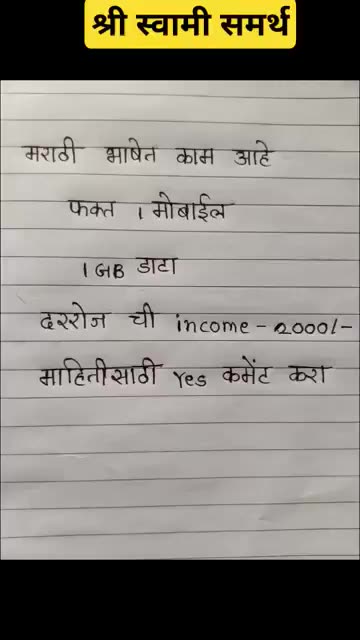 श्री स्वामी समर्थ
मराठी भाषेत काम आहे
फक्त 1 मोबाईल
1 GB डाटा
दररोज ची income - 2000/-
माहितीसाठी Yes कमेंट करा